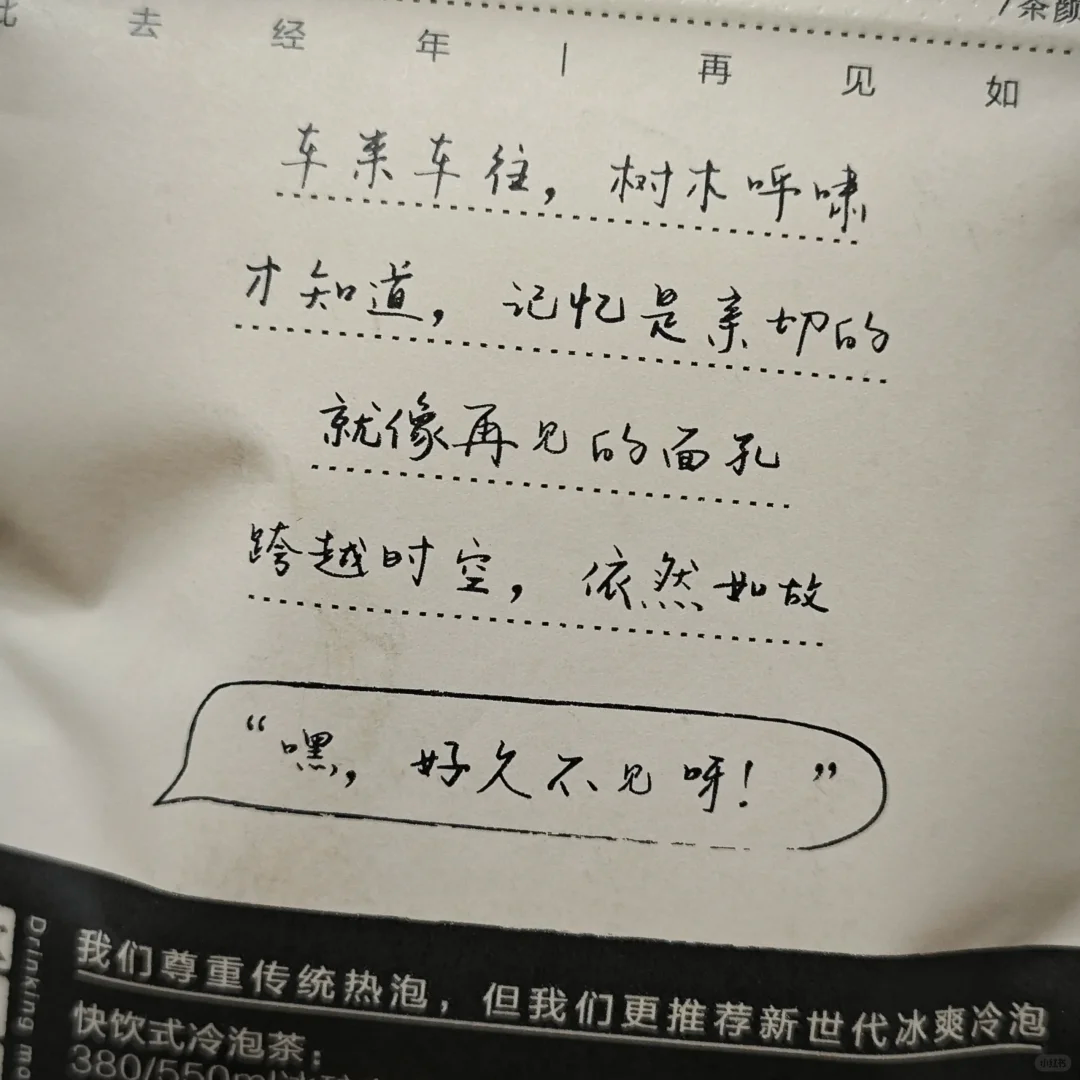 /茶颜
此去经年|再见如
车来车往，树木呼啸
才知道，记忆是亲切的
就像再见的面孔
跨越时空，依然如故
“嘿，好久不见呀！”
Drinking
我们尊重传统热泡，但我们更推荐新世代冰爽冷泡
快饮式冷泡茶：
380/550ml
小红书